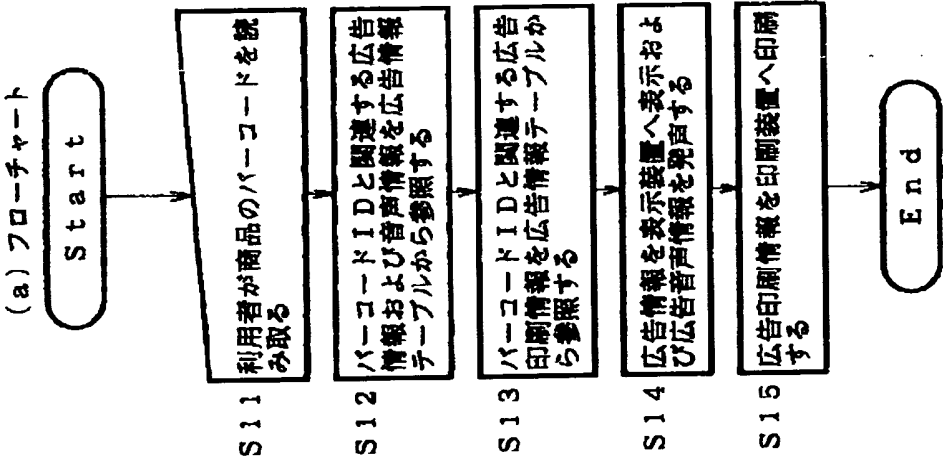 (a) フローチャート
Start
S11
利用者が商品のバーコードを読
み取る
S12
バーコードIDと関連する広告
情報および音声情報を広告情報
テーブルから参照する
S13
バーコードIDと関連する広告
印刷情報を広告情報テーブルか
ら参照する
S14
広告情報を表示装置へ表示およ
び広告音声情報を発声する
S15
広告印刷情報を印刷装置へ印刷
する
End